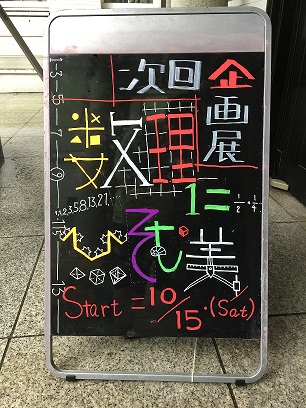 次回企画展
数理
1-3-5-7-9-11-13-15
1 = 1/2 · 1/4 ·
1,1,2,3,5,8,13,21...
ひそむ美
Start = 10/15・(Sat)